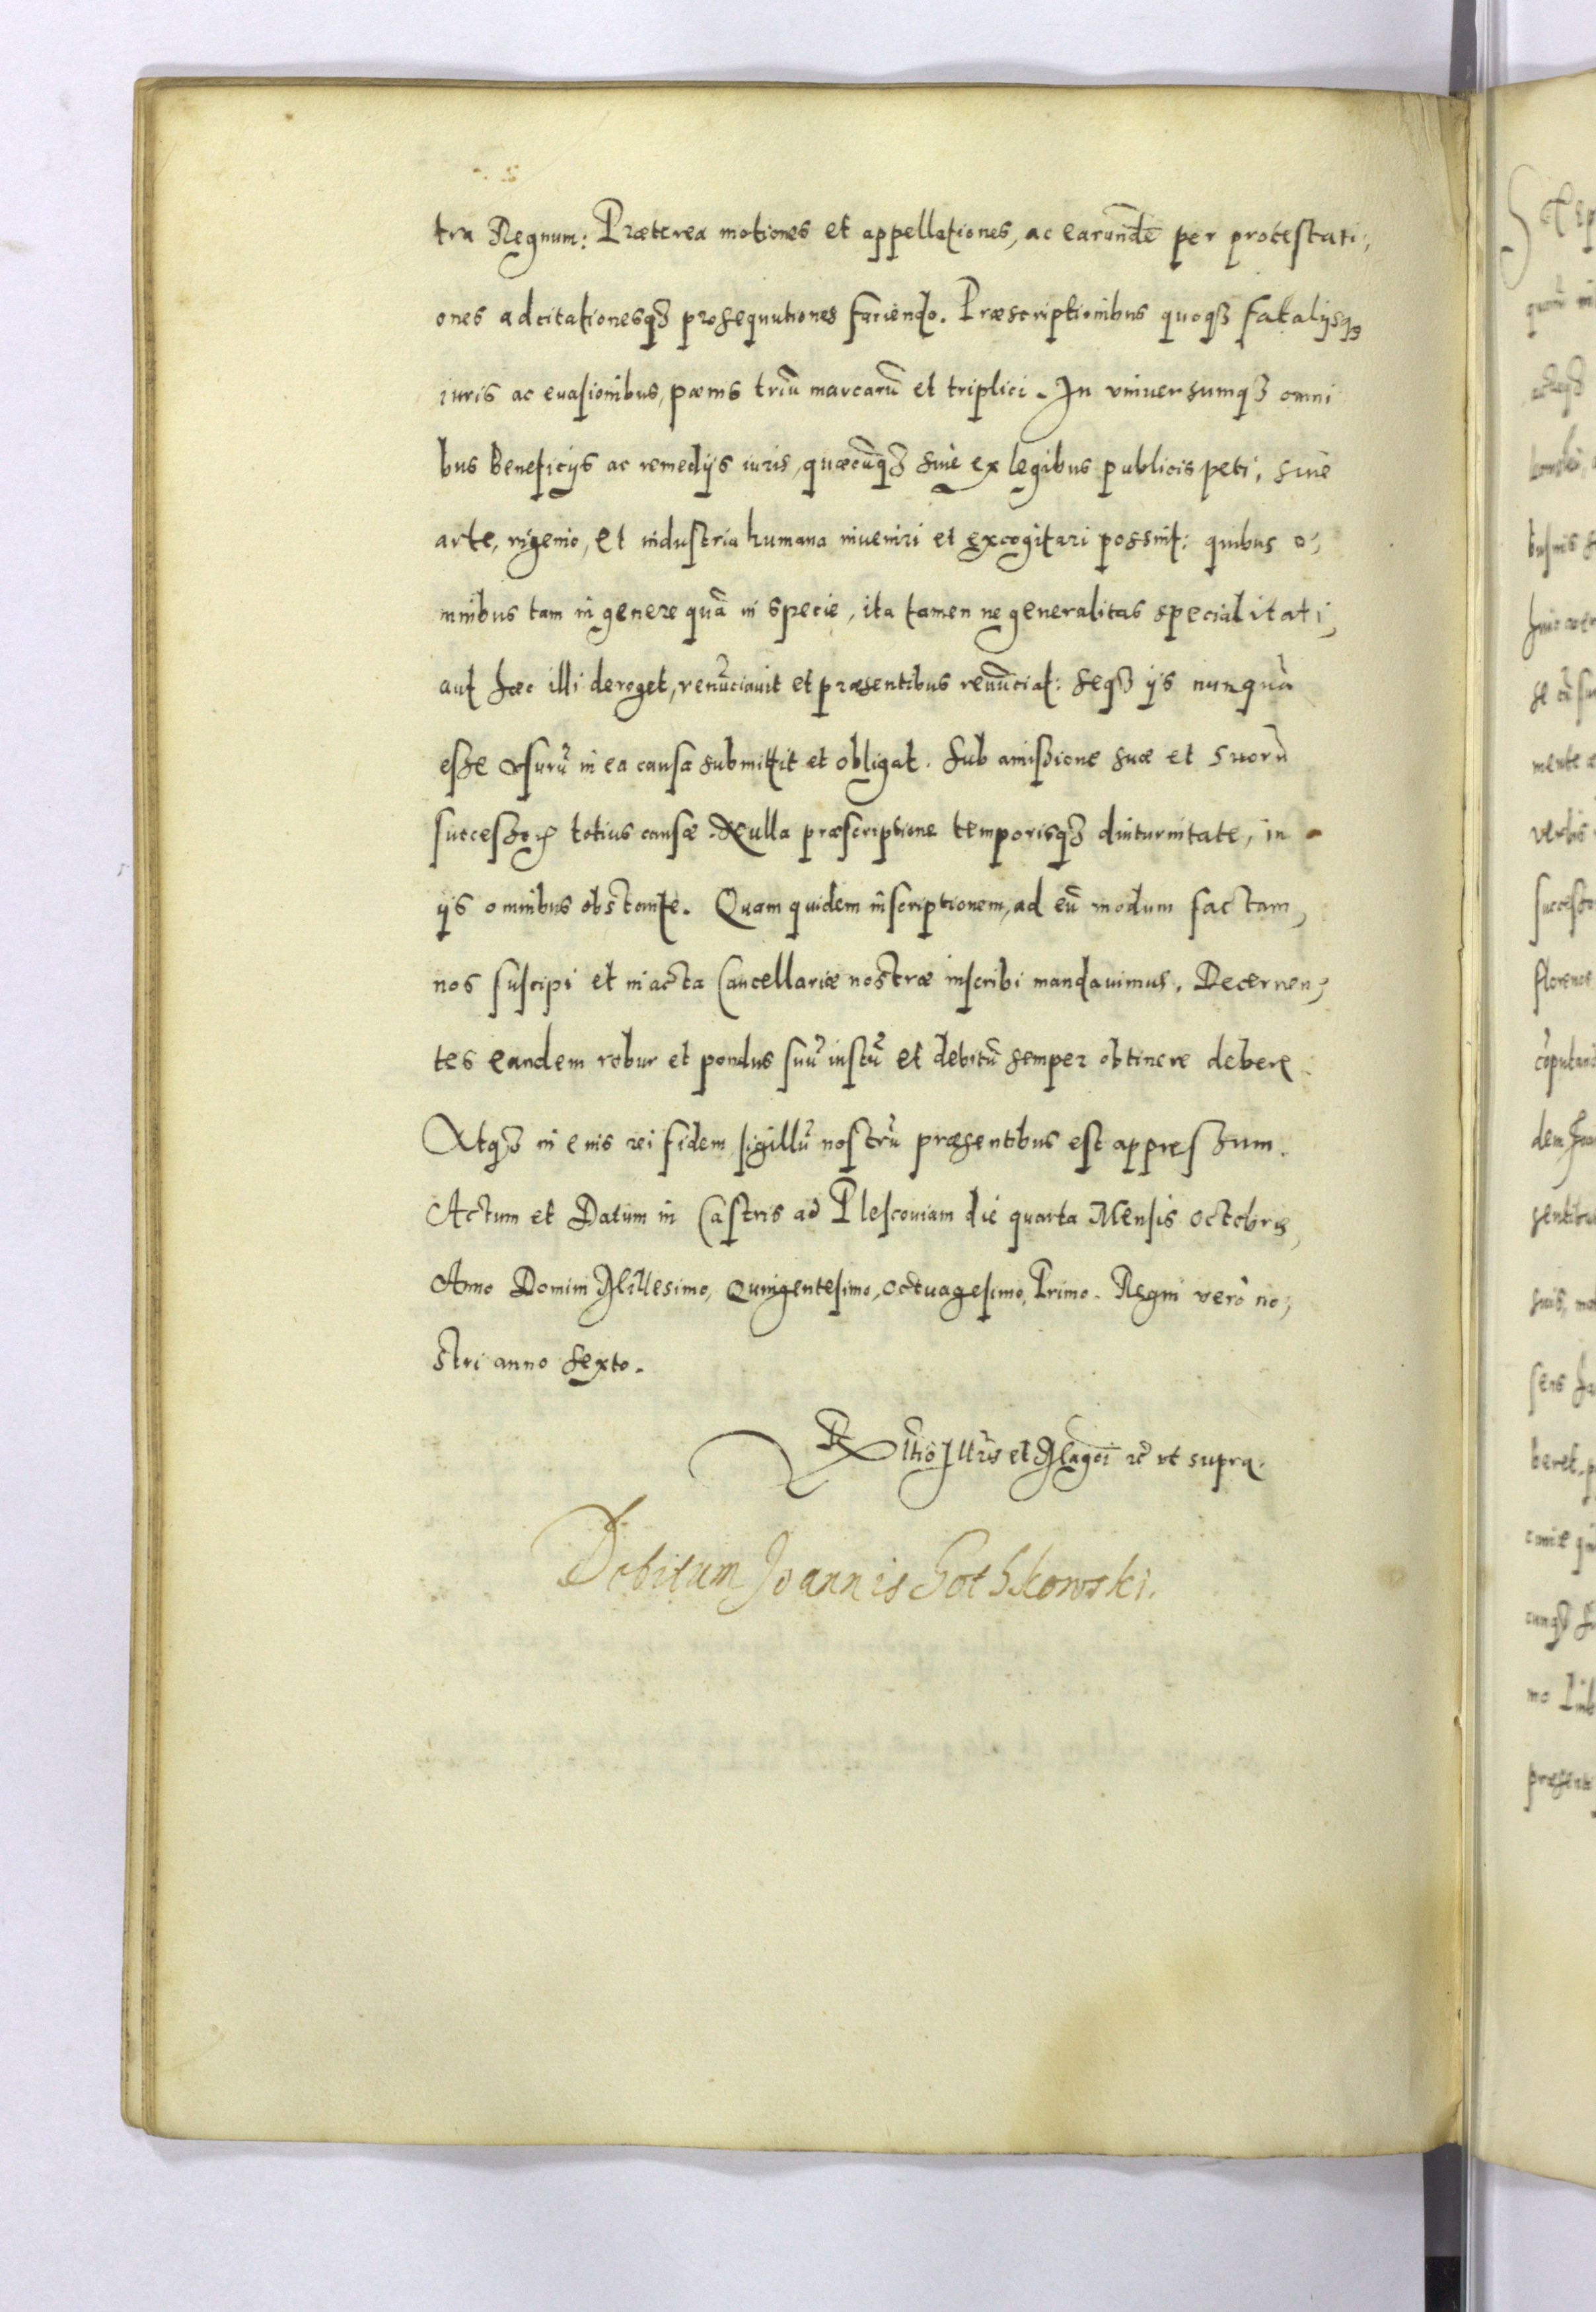 tra Regnum: Præterea motiones et appellationes, ac earundē per protestati,
ones adcitationesqȝ prosequutiones faciendo. Præscriptionibus quoqȝ fatalijsqȝ
iuris ac euasionibus, pœnis triū marcarū et triplici. In vniuersumqȝ omni
bus beneficijs ac remedijs iuris, quæcūqȝ siue ex legibus publicis peti, siue
arte, ingenio, et industria humana inueniri et excogitari possint: quibus o,
mnibus tam in genere quā in specie, ita tamen ne generalitas specialitati,
aut hæc illi deroget, renūciauit et præsentibus renūciat: seqȝ ijs nunquā
esse vsurū in ea causa submittit et obligat. Sub amissione suæ et suorū
successorꝝ totius causæ. Nulla præscriptione temporisqȝ diuturnitate, in
ijs omnibus obstante. Quam quidem inscriptionem, ad eū modum factam,
nos suscipi et in acta Cancellariæ nostræ inscribi mandauimus. Decernen,
tes eandem robur et pondus suū iustū et debitū semper obtinere debere
Atqȝ in euis rei fidem sigillū nostrū præsentibus est appressum.
Actum et Datum in Castris ad Plescouiam die quarta Mensis octobris,
Anno Domini Millesimo, Quingentesimo, octuagesimo, Primo. Regni verò no,
stri anno sexto.
Rltio Illris et Magci rc vt supra.
Debitum Joannis Gothkowski.
tep
quarū in
succeſso
florenos
cōputand
dem Joan